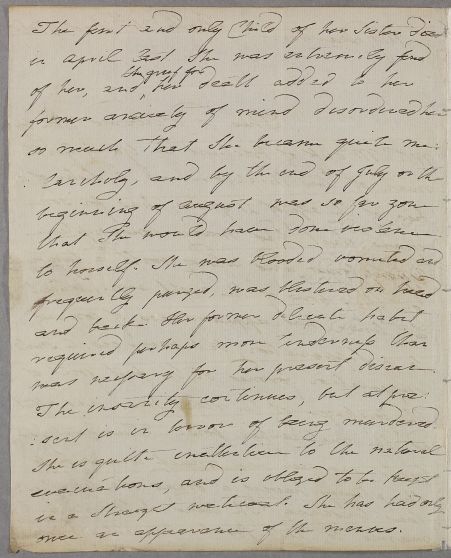 The first and only Child of her Sister died
in April last She was extremely fond
of her, and, the grief for her death added to her
former anxiety of mind disordered her
so much that She became quite me:
:lancholy, and by the end of July or the
beginning of august was so far gone
that She would have done violence
to herself. She was blooded vomited and
frequently purged, was blistered on head
and back. Her former delicate habit
required perhaps more tenderness than
was necessary for her present disease
The insanity continues, but at pre:
:sent is in terror of being murdered.
She is quite inattentive to the natural
evacuations, and is obliged to be kept
in a straight waistcoat. She has had only
once an appearance of the menses.